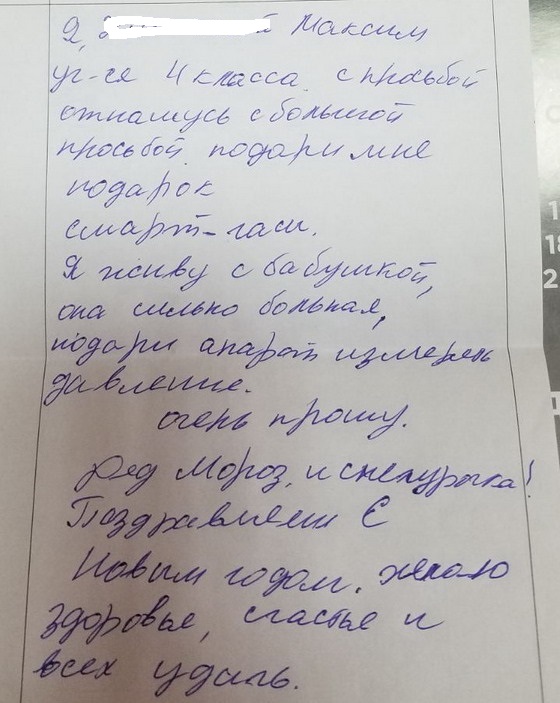 Я, й Максим
уг-ся 4 класса. с прозьбой
с большой
прозьбой. подари мне
подарок
смарт-гасы.
Я живу с бабушкой,
она сильно больная,
подари апарат измерять
давление.
очень прошу.
Дед Мороз, и снегурочка!
Поздравляем С
Новым годом. желаю
здоровье, счастье и
всех удачь.
1
18
2